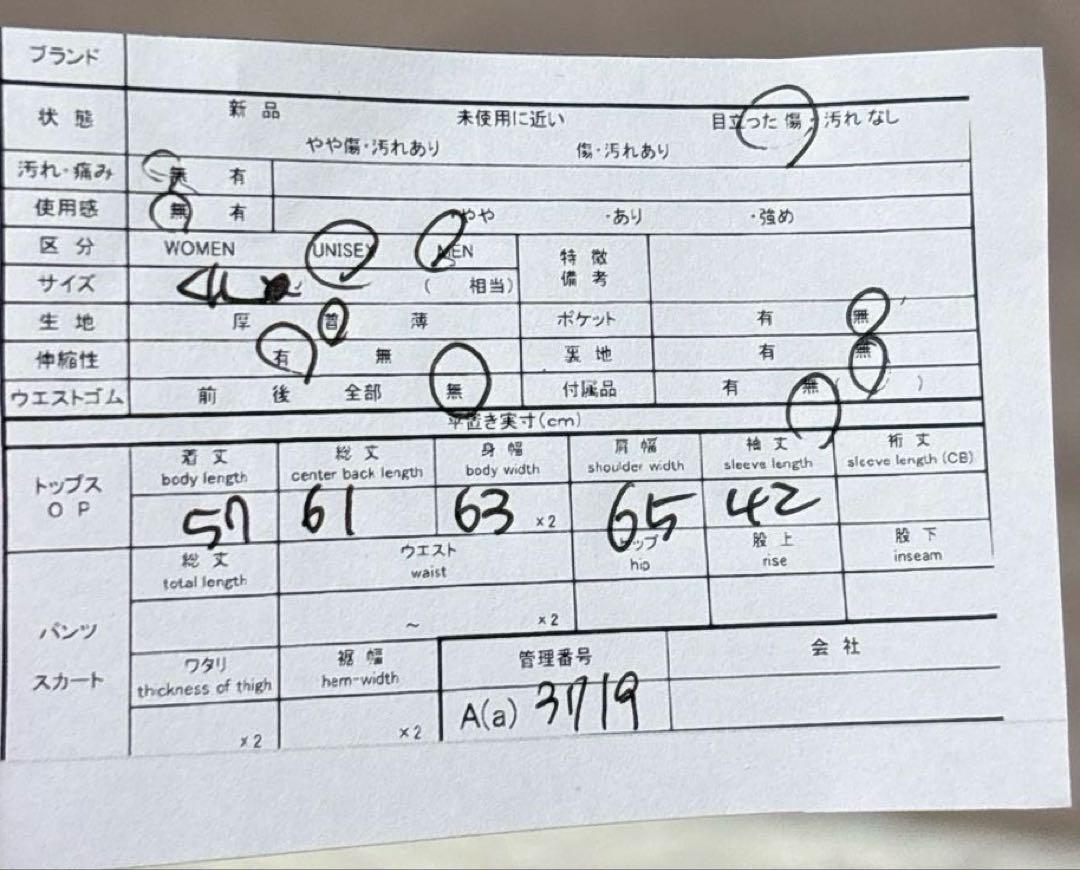 ブランド
状態 新品 未使用に近い 目立った傷・汚れなし
やや傷・汚れあり 傷・汚れあり
汚れ・痛み 無 有
使用感 無 有 ・やや ・あり ・強め
区分 WOMEN UNISEX MEN 特徴
備考
サイズ ( 相当)
生地 厚 普 薄 ポケット 有 無
伸縮性 有 無 裏地 有 無
ウエストゴム 前 後 全部 無 付属品 有 無 ( )
平置き実寸(cm)
トップス
OP
着丈 総丈 身幅 肩幅 袖丈 裄丈
body length center back length body width shoulder width sleeve length sleeve length (CB)
57 61 63 ×2 65 42
パンツ
スカート
総丈 ウエスト ヒップ 股上 股下
total length waist hip rise inseam
~ ×2
ワタリ 裾幅 管理番号 会社
thickness of thigh hem-width
×2 ×2 A(a) 3719